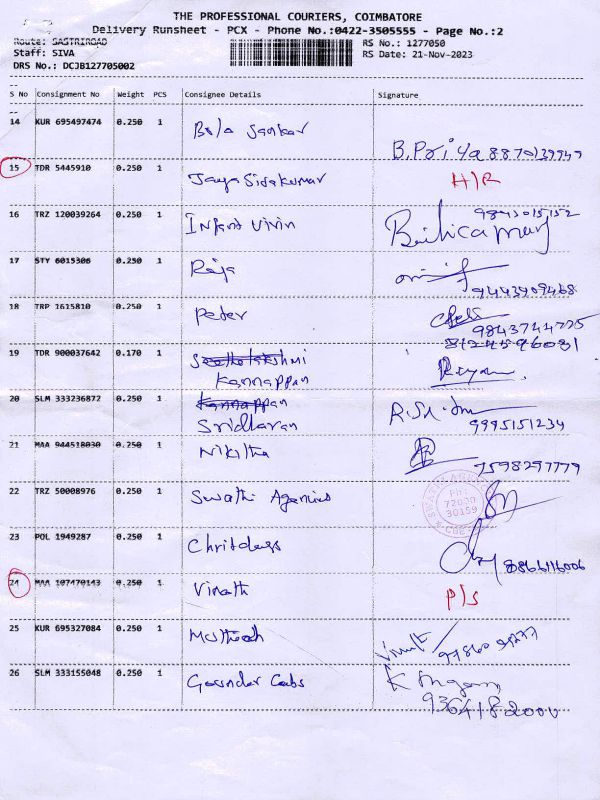 THE PROFESSIONAL COURIERS, COIMBATORE
Delivery Runsheet - PCX - Phone No.:0422-3505555 - Page No.:2
Route: SASTRIROAD
Staff: SIVA
RS No.: 1277050
DRS No.: DCJB127705002
RS Date: 21-Nov-2023
S No Consignment No Weight PCS Consignee Details Signature
14 KUR 695497474 0.250 1 Bala Sankar
B.Priya 8870139949
15 TDR 5445910 0.250 1 Jaya Sivakumar H/R
16 TRZ 120039264 0.250 1 Infant Vivin 9843015152
17 STY 6015306 0.250 1 Raja
9443909468
18 TRP 1615810 0.250 1 Peter
9843744725
8124596081
19 TDR 900037642 0.170 1 Seethalakshmi
Kannappan
20 SLM 333236872 0.250 1 Kannappan
Sridharan
9995151234
21 MAA 944518030 0.250 1 Nikitha
7598297779
22 TRZ 50008976 0.250 1 Swathi Agencies
23 POL 1949287 0.250 1
8866116006
24 MAA 107470143 0.250 1 Vinoth P/S
25 KUR 695327084 0.250 1
26 SLM 333155048 0.250 1 Govindar Cabs
9364182000